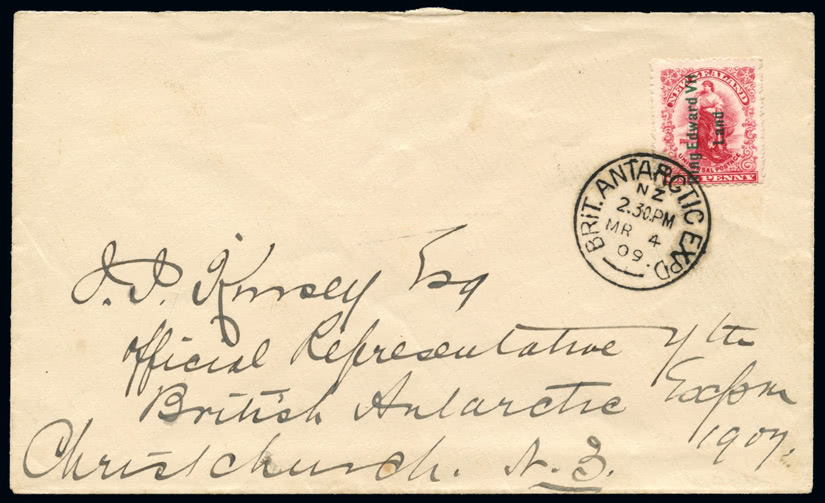 NEW ZEALAND
King Edward VII
Land
UNIVERSAL POSTAGE
PENNY
BRIT. ANTARCTIC EXPD
NZ
2.30.PM
MR 4
09.
J. J. Kinsey Esq
Official Representative of the
British Antarctic Expdn
1907.
Christchurch. N. Z.